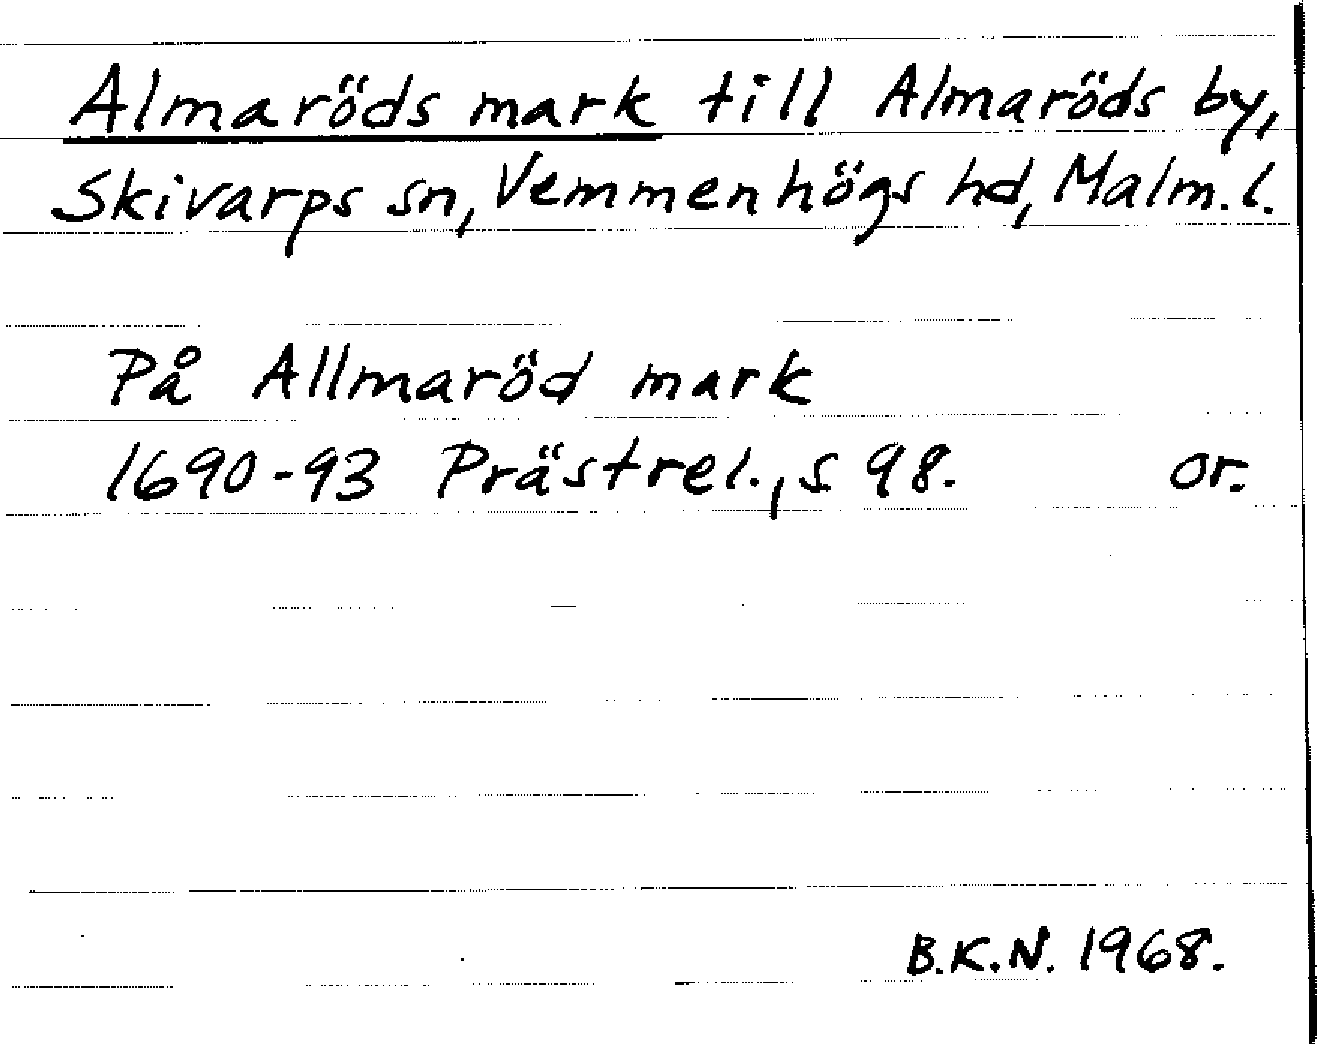 Almaröds mark till Almaröds by,
Skivarps sn, Vemmenhögs hd, Malm. l.
På Allmaröd mark
1690-93 Prästrel., s 98. or.
B.K.N. 1968.